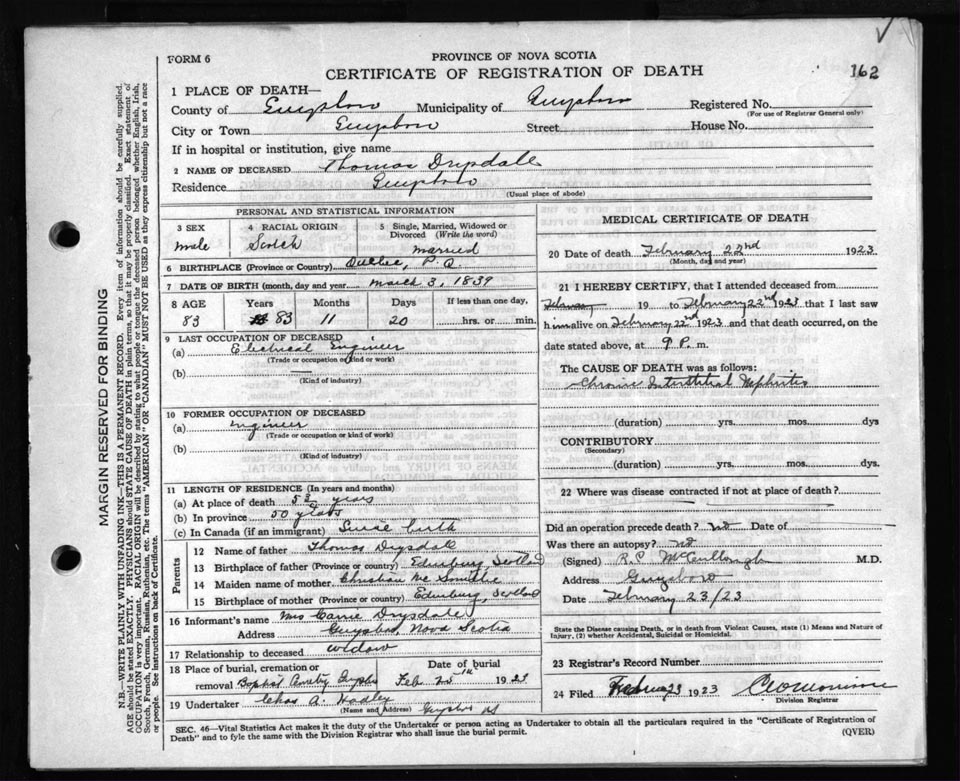 FORM 6
PROVINCE OF NOVA SCOTIA
CERTIFICATE OF REGISTRATION OF DEATH
162
1 PLACE OF DEATH—
County of Guysboro Municipality of Guysboro Registered No.
(For use of Registrar General only)
City or Town Guysboro Street House No.
If in hospital or institution, give name
2 NAME OF DECEASED Thomas Drysdale
Residence Guysboro
(Usual place of abode)
PERSONAL AND STATISTICAL INFORMATION
3 SEX 4 RACIAL ORIGIN 5 Single, Married, Widowed or Divorced (Write the word)
male Scotch married
6 BIRTHPLACE (Province or Country) Quebec, P.Q.
7 DATE OF BIRTH (month, day and year) March 3, 1839
8 AGE Years Months Days If less than one day,
83 83 11 20 hrs. or min.
9 LAST OCCUPATION OF DECEASED
(a) Electrical Engineer
(Trade or occupation or kind or work)
(b) —
(Kind of industry)
10 FORMER OCCUPATION OF DECEASED
(a) Engineer
(Trade or occupation or kind of work)
(b)
(Kind of industry)
11 LENGTH OF RESIDENCE (In years and months)
(a) At place of death years
(b) In province 50 years
(c) In Canada (if an immigrant) Since birth
Parents
12 Name of father Thomas Drysdale
13 Birthplace of father (Province or country) Edinburg, Scotland
14 Maiden name of mother Christian Mc
15 Birthplace of mother (Province or Country) Edinburg, Scotland
16 Informant's name Mrs Carrie Drysdale
Address Guysboro, Nova Scotia
17 Relationship to deceased widow
18 Place of burial, cremation or Date of burial
removal Baptist Guysboro Feb. 25th 1923
19 Undertaker Chas A.
(Name and Address) Guysboro NS
MEDICAL CERTIFICATE OF DEATH
20 Date of death February 22nd 1923
(Month, day and year)
21 I HEREBY CERTIFY, that I attended deceased from
February 19 to February 22nd 1923 that I last saw
him alive on February 22nd 1923 and that death occurred, on the
date stated above, at 9 P. m.
The CAUSE OF DEATH was as follows:
Chronic Interstitial Nephritis
(duration) yrs. mos. dys
CONTRIBUTORY
(Secondary)
(duration) yrs. mos. dys.
22 Where was disease contracted if not at place of death?
Did an operation precede death? no Date of
Was there an autopsy? no
(Signed) R.P McCullough M.D.
Address Guysboro
Date February 23/23
State the Disease causing Death, or in death from Violent Causes, state (1) Means and Nature of
Injury, (2) whether Accidental, Suicidal or Homicidal.
23 Registrar's Record Number
24 Filed 23 1923
Division Registrar
SEC. 46—Vital Statistics Act makes it the duty of the Undertaker or person acting as Undertaker to obtain all the particulars required in the "Certificate of Registration of
Death" and to fyle the same with the Division Registrar who shall issue the burial permit.
(OVER)
MARGIN RESERVED FOR BINDING
N.B.—WRITE PLAINLY WITH UNFADING INK—THIS IS A PERMANENT RECORD. Every item of information should be carefully supplied.
AGE should be stated EXACTLY. PHYSICIANS should STATE CAUSE OF DEATH in plain terms, so that it may be properly classified. Exact statement of
OCCUPATION is very important. RACIAL ORIGIN will be described by stating to what people or tongue the deceased person belonged whether English, Irish,
Scotch, French, German, Russian, Ruthenian, etc. The terms "AMERICAN" OR "CANADIAN" MUST NOT BE USED as they express citizenship but not a race
or people. See instructions on back of Certificate.